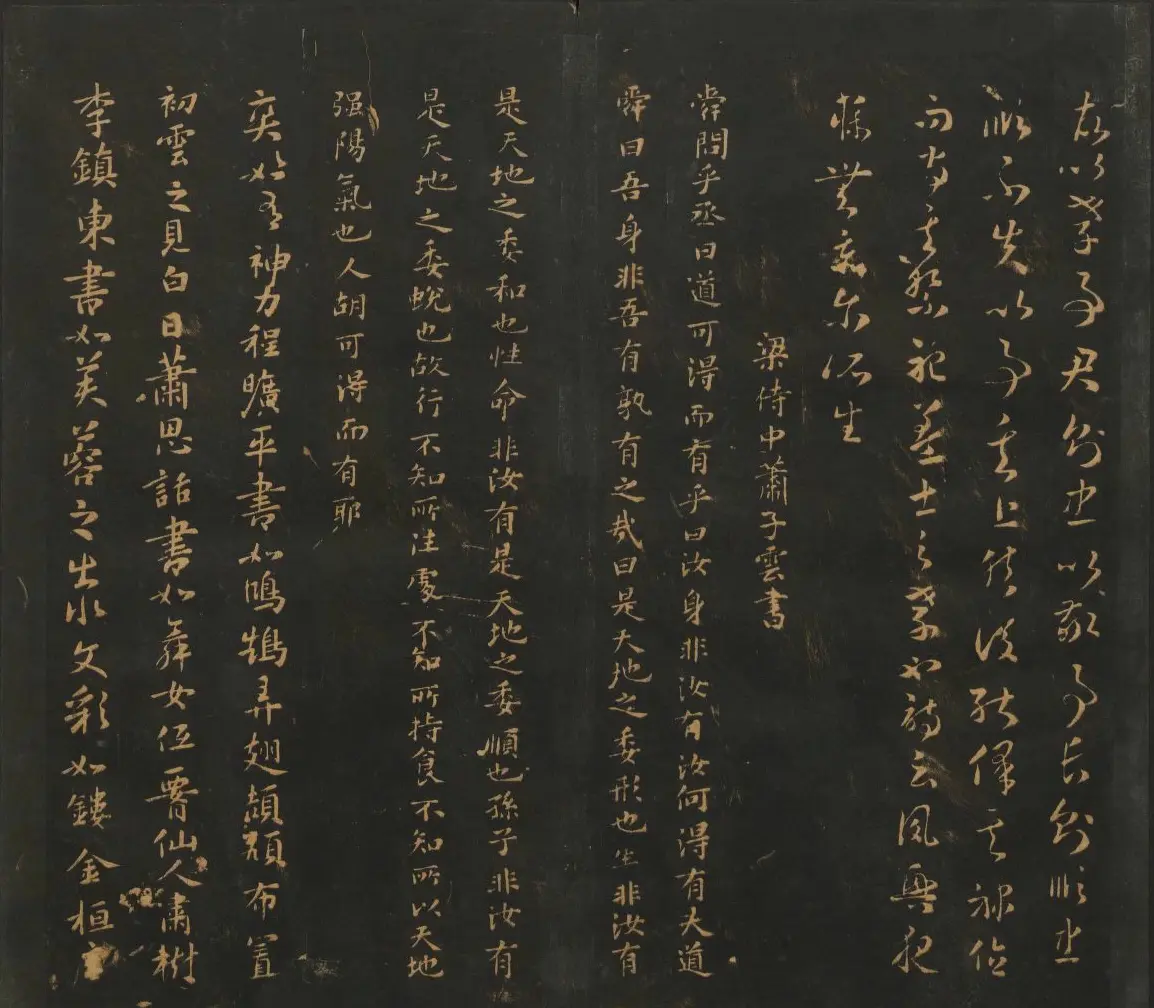 故以孝事君則忠以敬事長則順忠
順不失以事其上然後能保其祿位
而守其祭祀蓋士之孝也詩云夙興夜
寐無忝尔所生
梁侍中蕭子雲書
舜問乎丞曰道可得而有乎曰汝身非汝有汝何得有夫道
舜曰吾身非吾有孰有之哉曰是天地之委形也生非汝有
是天地之委和也性命非汝有是天地之委順也孫子非汝有
是天地之委蛻也故行不知所往處不知所持食不知所以天地
强陽氣也人胡可得而有耶
奕如有神力程曠平書如鴻鵠弄翅頡頏布置
初雲之見白日蕭思話書如舞女低腰仙人嘯樹
李鎮東書如芙蓉之出水文彩如鏤金桓